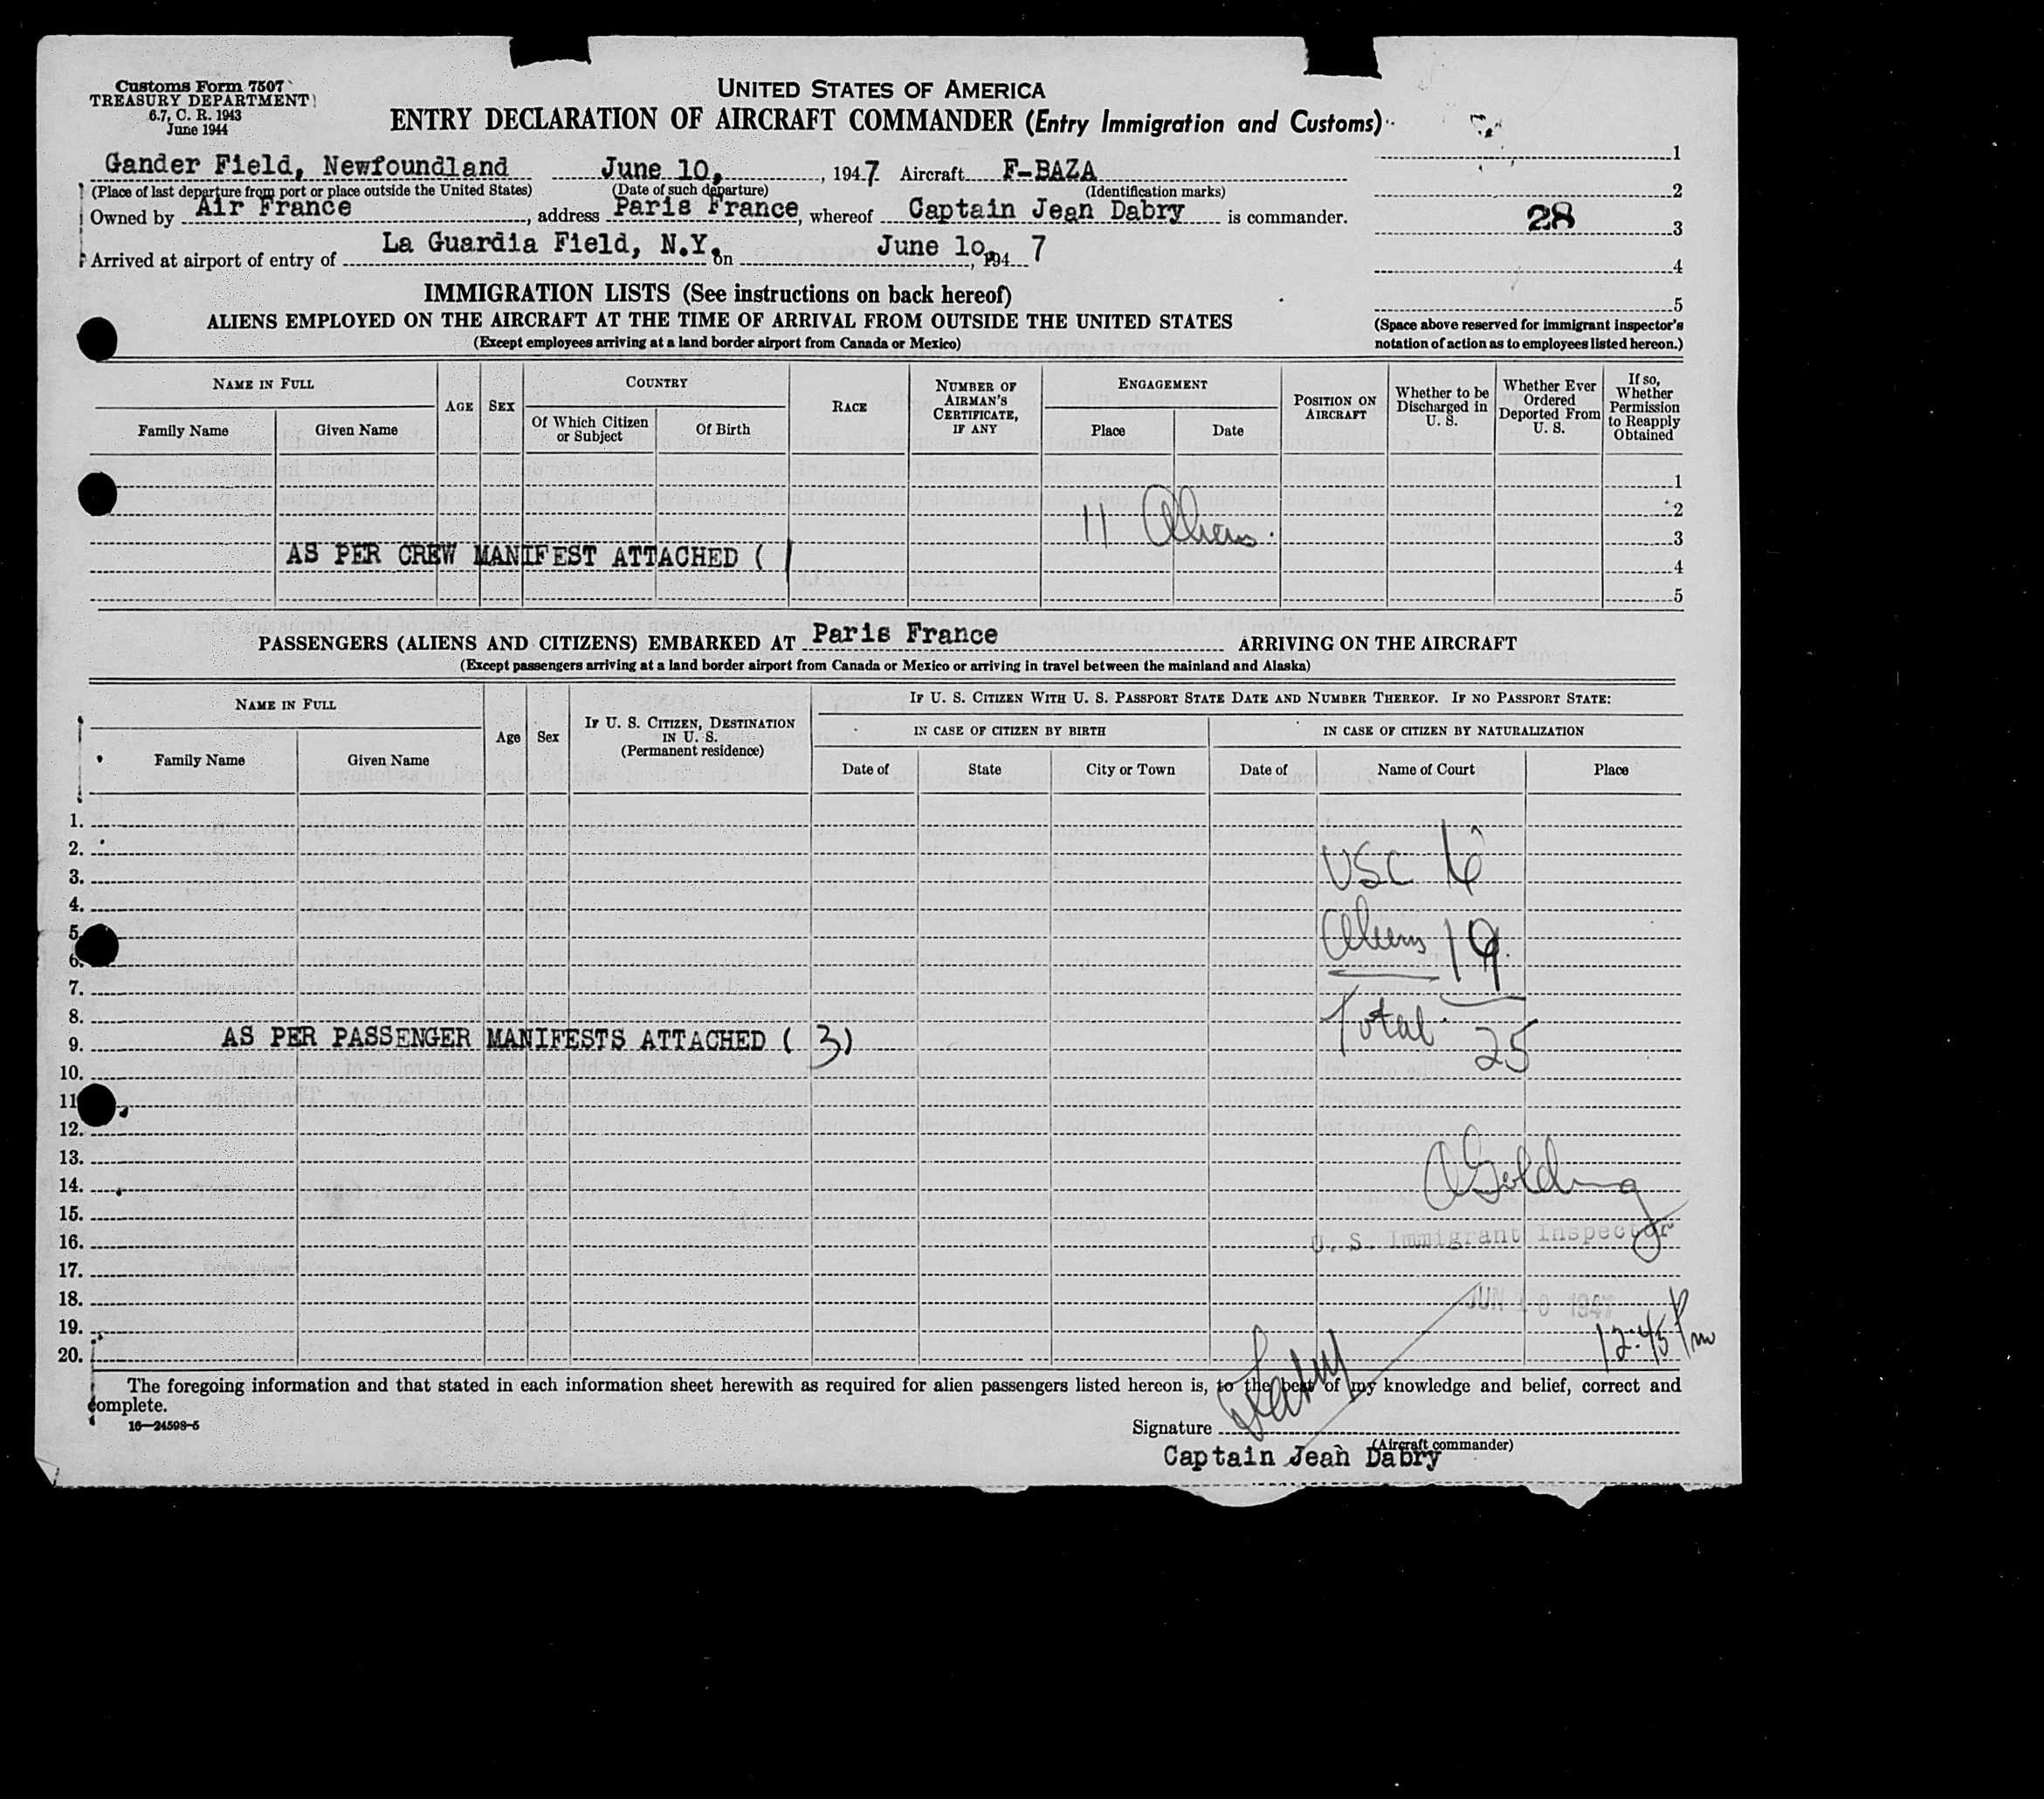 Customs Form 7507
TREASURY DEPARTMENT
6.7, C. R. 1943
June 1944
UNITED STATES OF AMERICA
ENTRY DECLARATION OF AIRCRAFT COMMANDER (Entry Immigration and Customs)
Gander Field, Newfoundland June 10, , 1947 Aircraft F-BAZA
(Place of last departure from port or place outside the United States) (Date of such departure) (Identification marks)
Owned by Air France , address Paris France, whereof Captain Jean Dabry is commander.
Arrived at airport of entry of La Guardia Field, N.Y. on June 10, 194 7
1
2
28 3
4
5
(Space above reserved for immigrant inspector's
notation of action as to employees listed hereon.)
IMMIGRATION LISTS (See instructions on back hereof)
ALIENS EMPLOYED ON THE AIRCRAFT AT THE TIME OF ARRIVAL FROM OUTSIDE THE UNITED STATES
(Except employees arriving at a land border airport from Canada or Mexico)
NAME IN FULL
Family Name Given Name
AGE SEX
COUNTRY
Of Which Citizen or Subject Of Birth
RACE
NUMBER OF AIRMAN'S CERTIFICATE, IF ANY
ENGAGEMENT
Place Date
POSITION ON AIRCRAFT
Whether to be Discharged in U. S.
Whether Ever Ordered Deported From U. S.
If so, Whether Permission to Reapply Obtained
1
2
11 Aliens. 3
AS PER CREW MANIFEST ATTACHED ( 4
5
PASSENGERS (ALIENS AND CITIZENS) EMBARKED AT Paris France ARRIVING ON THE AIRCRAFT
(Except passengers arriving at a land border airport from Canada or Mexico or arriving in travel between the mainland and Alaska)
NAME IN FULL
Family Name Given Name
Age Sex
IF U. S. CITIZEN, DESTINATION IN U. S.
(Permanent residence)
IF U. S. CITIZEN WITH U. S. PASSPORT STATE DATE AND NUMBER THEREOF. IF NO PASSPORT STATE:
IN CASE OF CITIZEN BY BIRTH IN CASE OF CITIZEN BY NATURALIZATION
Date of State City or Town Date of Name of Court Place
1.
2.
3. USC 6
4.
5.
6. Aliens 19
7.
8. Total
9. AS PER PASSENGER MANIFESTS ATTACHED ( 3) 25
10.
11
12.
13.
14. A Golding
15.
16. U. S. Immigrant Inspector
17.
18. JUN 10 1947
19. 12:45 Pm
20.
The foregoing information and that stated in each information sheet herewith as required for alien passengers listed hereon is, to the best of my knowledge and belief, correct and
complete.
16—24598-5
Signature Dabry
(Aircraft commander)
Captain Jean Dabry